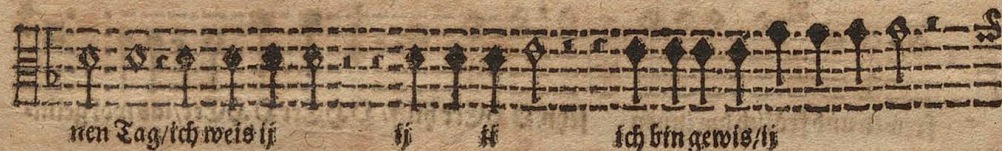 nen Tag/ich weis ij ij ij ich bin gewis/ij